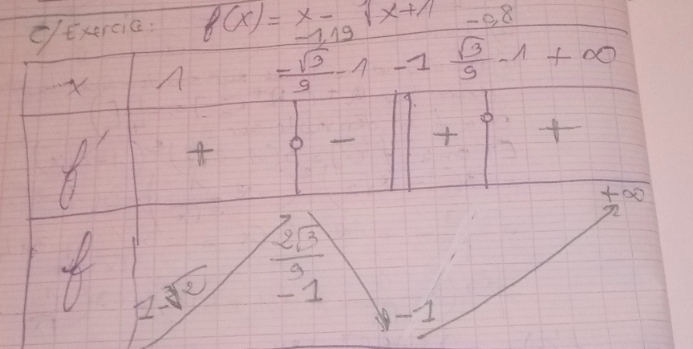 C/ Exercice: f(x) = x - ∛x+1
-1,19 -0,8
x 1 -√3/9 -1 -1 √3/9 -1 +∞
f' + - + +
+∞
f 1-∛2 2√3/9 -1 -1